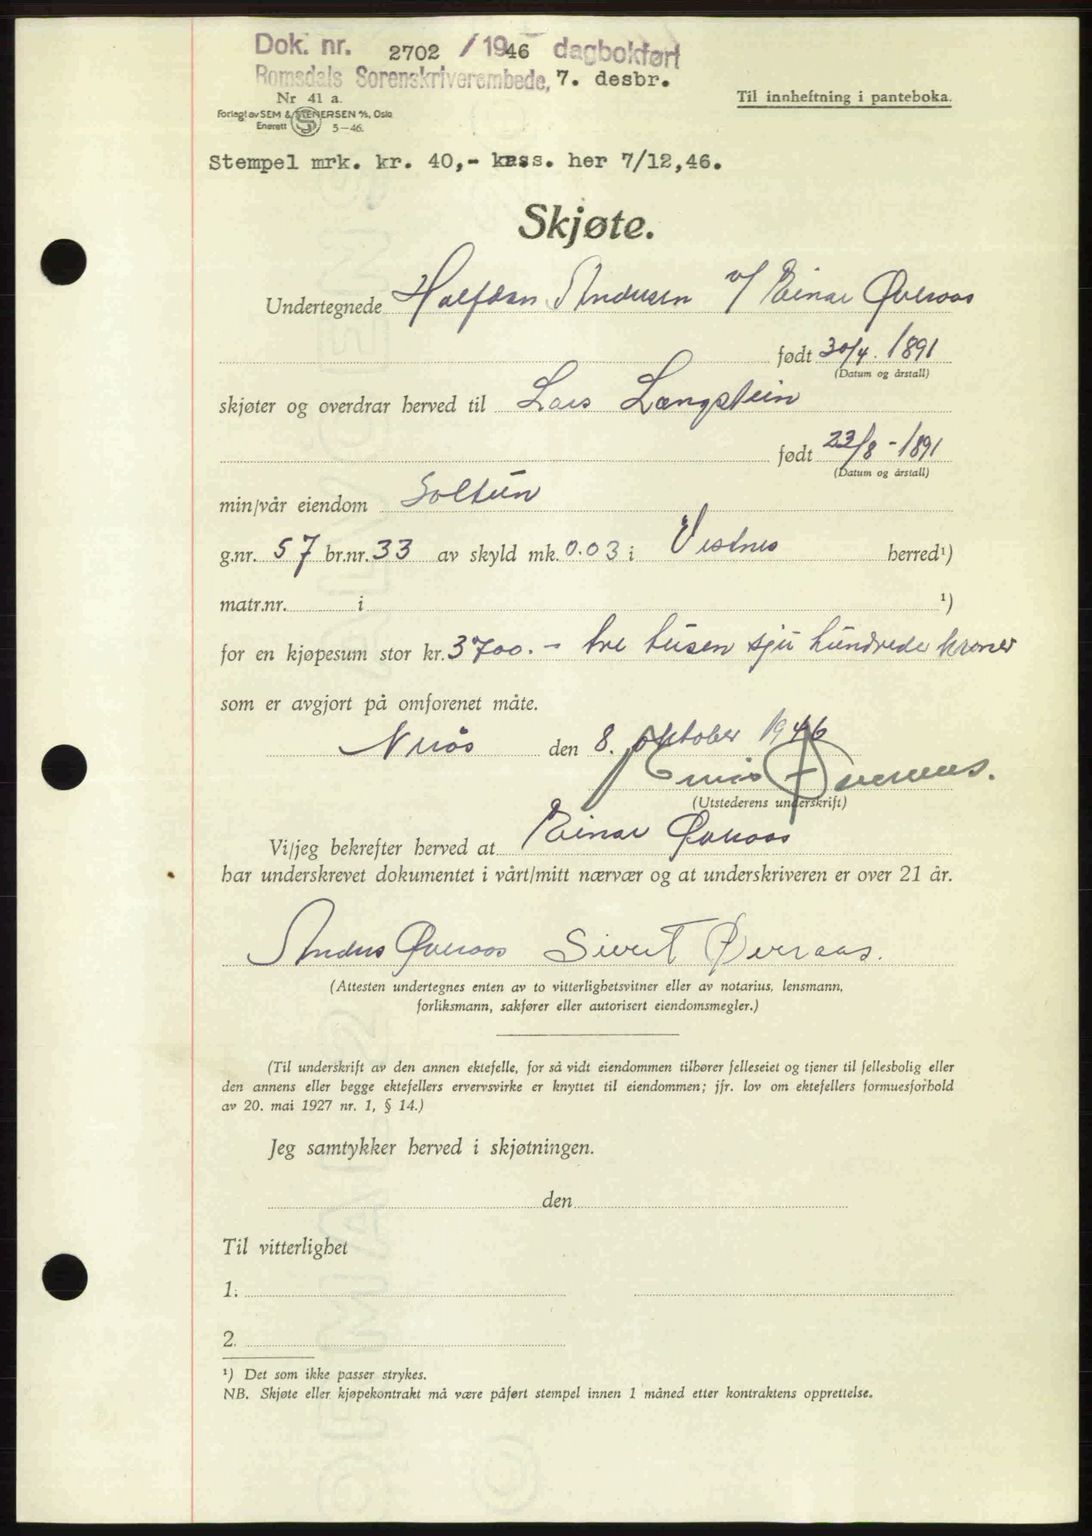 Dok. nr. 2702 / 1946 dagbokført
Romsdals Sorenskriverembede, 7. desbr.
Nr 41 a.
Forlagt av SEM & STENERSEN A/S, Oslo
Enerett 5-46.
Til innheftning i panteboka.
Stempel mrk. kr. 40,- kass. her 7/12,46.
Skjøte.
Undertegnede Halfdan Andersen v/ Einar Øveraas
født 30/4. 1891
(Datum og årstall)
skjøter og overdrar herved til Lars Langstein
født 23/8 - 1891
(Datum og årstall)
min/vår eiendom Soltun
g.nr. 57 br.nr. 33 av skyld mk. 0.03 i Vestnes herred¹)
matr.nr. i ¹)
for en kjøpesum stor kr. 3700.- tre tusen sju hundrede kroner
som er avgjort på omforenet måte.
den 8. oktober 1946
Einar Øveraas.
(Utstederens underskrift)
Vi/jeg bekrefter herved at Einar Øveraas
har underskrevet dokumentet i vårt/mitt nærvær og at underskriveren er over 21 år.
Anders Øveraas Sivert Øveraas.
(Attesten undertegnes enten av to vitterlighetsvitner eller av notarius, lensmann,
forliksmann, sakfører eller autorisert eiendomsmegler.)
(Til underskrift av den annen ektefelle, for så vidt eiendommen tilhører felleseiet og tjener til fellesbolig eller
den annens eller begge ektefellers ervervsvirke er knyttet til eiendommen; jfr. lov om ektefellers formuesforhold
av 20. mai 1927 nr. 1, § 14.)
Jeg samtykker herved i skjøtningen.
den
Til vitterlighet
1.
2.
¹) Det som ikke passer strykes.
NB. Skjøte eller kjøpekontrakt må være påført stempel innen 1 måned etter kontraktens opprettelse.